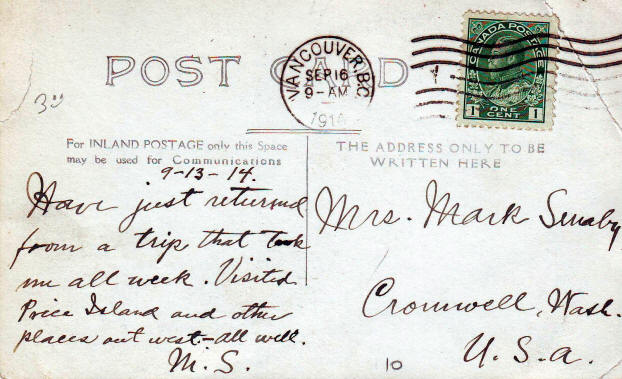 POST CARD
VANCOUVER, B.C.
SEP 16
9 - AM
1914
CANADA POSTAGE
1 ONE CENT 1
3⁰⁰
For INLAND POSTAGE only this Space
may be used for Communications
THE ADDRESS ONLY TO BE
WRITTEN HERE
9-13-14.
Have just returned
from a trip that took
me all week. Visited
Price Island and other
places out west - all well.
M. S.
Mrs. Mark
Cromwell, Wash.
U. S. A.
10